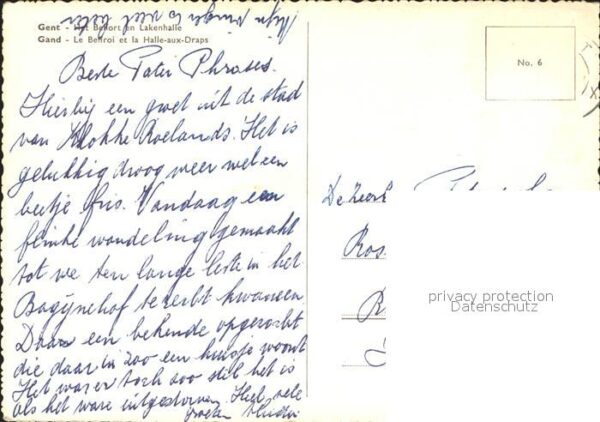 Mijn vinger is veel beter
Gent - Het Belfort en Lakenhalle
Gand - Le Beffroi et la Halle-aux-Draps
No. 6
Beste Pater
Hierbij een groet uit de stad
van Klokke Roelands. Het is
gelukkig droog weer wel een
beetje fris. Vandaag een
flinke wandeling gemaakt
tot we ten lange leste in het
Bagijnehof terecht kwamen
Daar een bekende opgezocht
die daar in zoo een huisje woont
Het was er toch zoo stil het is
als het ware uitgestorven. Heel vele
groeten
De Zeer
Ros
R
privacy protection
Datenschutz